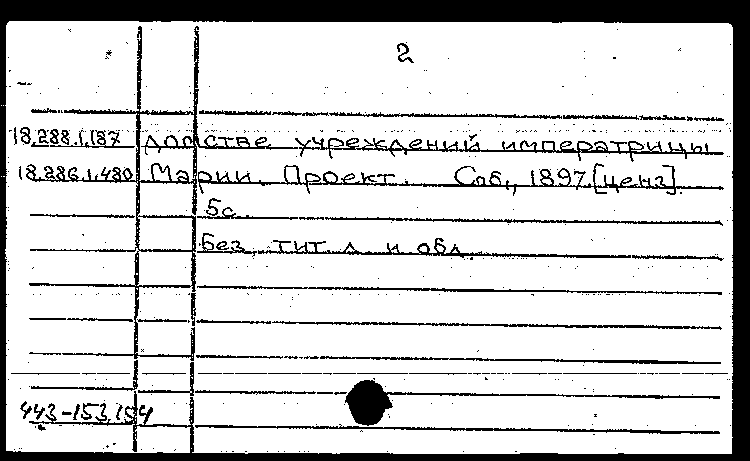 2
18.288.1.187 домстве учреждений императрицы
18.286.1.480 Марии. Проект. Спб., 1897.[ценз].
5с.
без тит. л. и обл.
443-153.154